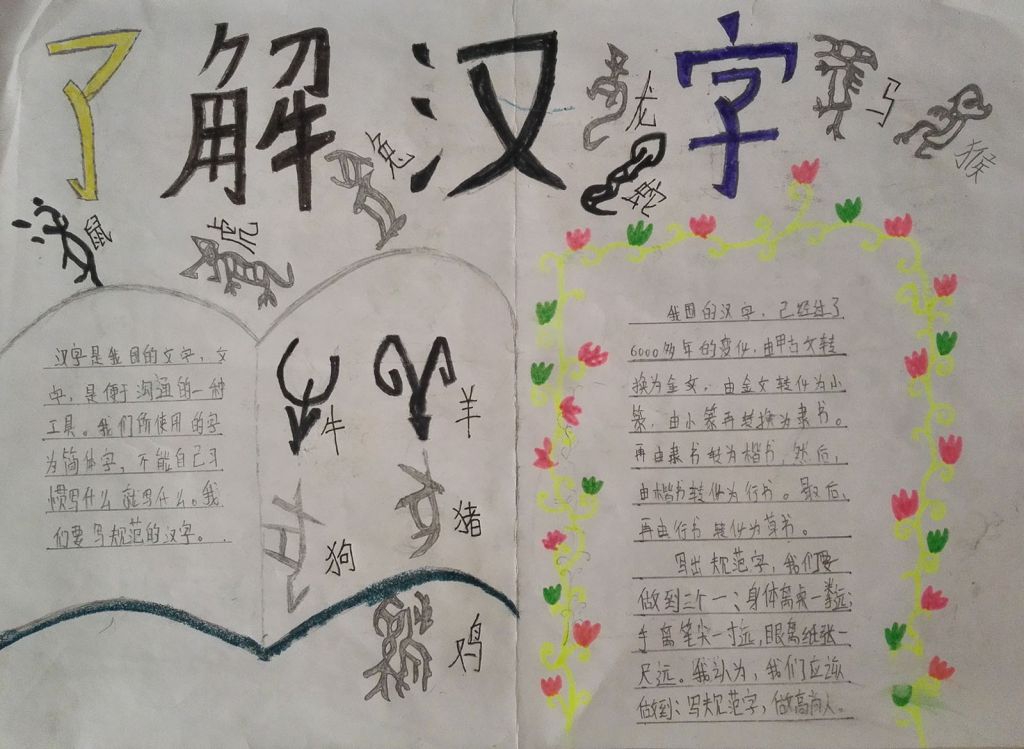 了解汉字
龙
马
猴
兔
蛇
鼠
虎
牛
羊
狗
猪
鸡
汉字是我国的文字，文
字，是便于沟通的一种
工具。我们所使用的字
为简体字，不能自己习
惯写什么就写什么。我
们要写规范的汉字。
我国的汉字，已经过了
6000多年的变化，由甲古文转
换为金文，由金文转化为小
篆，由小篆再转换为隶书。
再由隶书转为楷书，然后，
由楷书转化为行书。最后，
再由行书转化为草书。
写出规范字，我们要
做到三个一：身体离桌一拳远；
手离笔尖一寸远，眼离纸张一
尺远。我认为，我们应该
做到：写规范字，做高尚人。